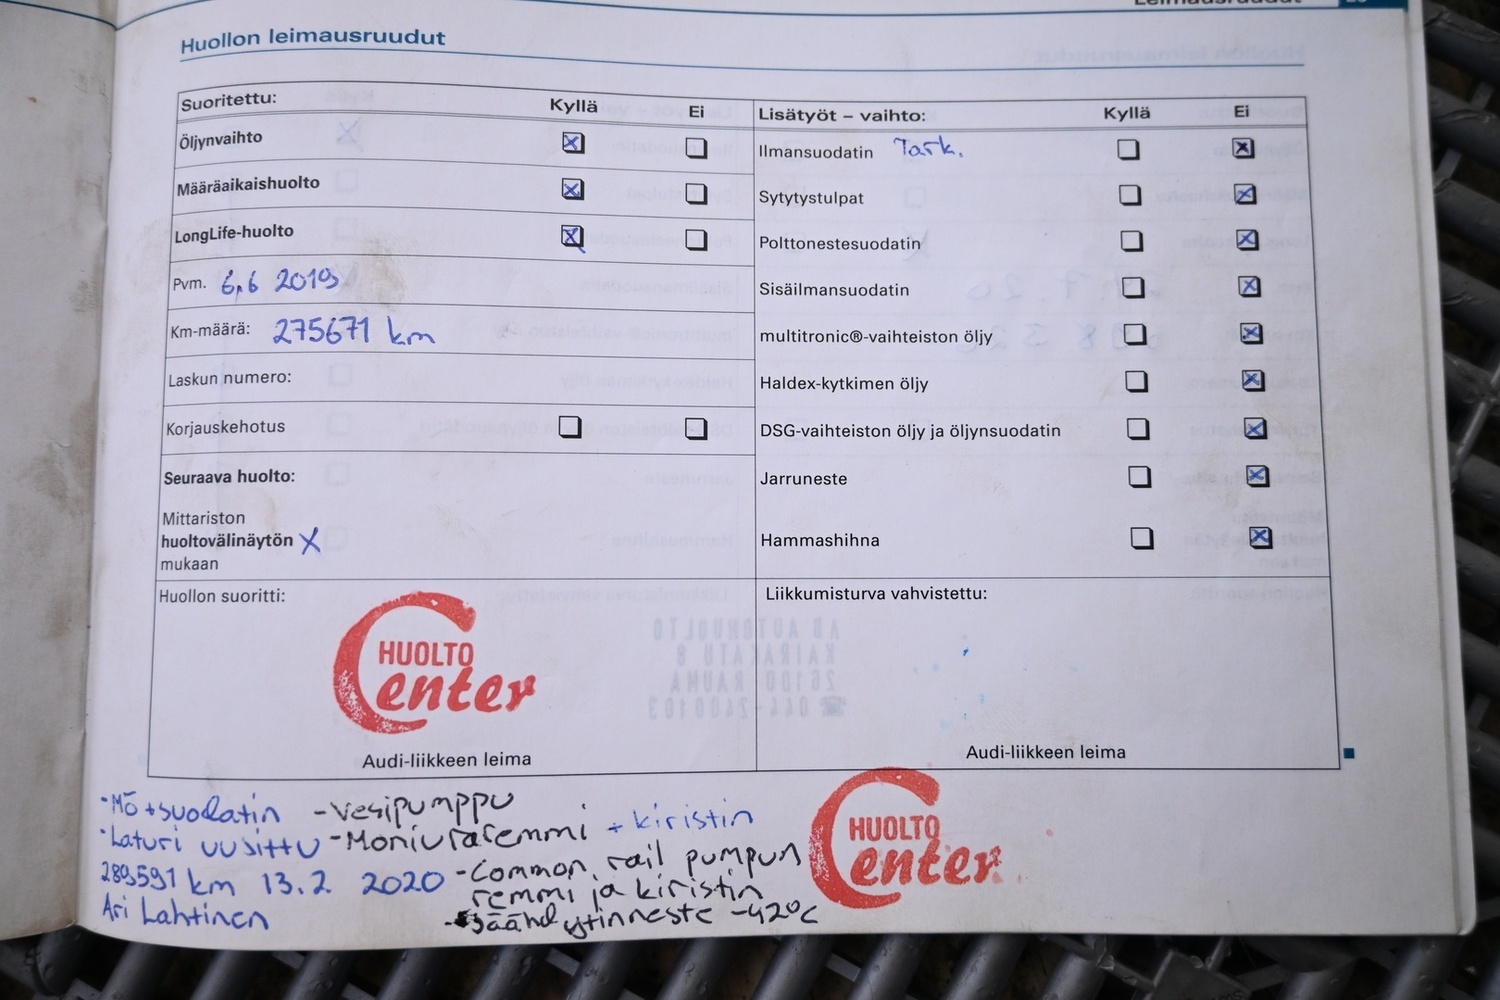 Leimausruudut
Huollon leimausruudut
Suoritettu: Kyllä Ei
Öljynvaihto
Määräaikaishuolto
LongLife-huolto
Pvm. 6,6 2019
Km-määrä: 275671 km
Laskun numero:
Korjauskehotus
Seuraava huolto:
Mittariston
huoltovälinäytön X
mukaan
Huollon suoritti:
HUOLTO
Center
Audi-liikkeen leima
Lisätyöt – vaihto: Kyllä Ei
Ilmansuodatin Tark.
Sytytystulpat
Polttonestesuodatin
Sisäilmansuodatin
multitronic®-vaihteiston öljy
Haldex-kytkimen öljy
DSG-vaihteiston öljy ja öljynsuodatin
Jarruneste
Hammashihna
Liikkumisturva vahvistettu:
AD AUTOHUOLTO
KAIRAKATU 8
26100 RAUMA
☎ 044-2400103
Audi-liikkeen leima
·Mö+suodatin
·Laturi uusittu
289591 km 13.2 2020
Ari Lahtinen
-Vesipumppu
-Moniuraremmi + kiristin
-Common rail pumpun
remmi ja kiristin
-Jäähdytinneste -42°C
HUOLTO
Center